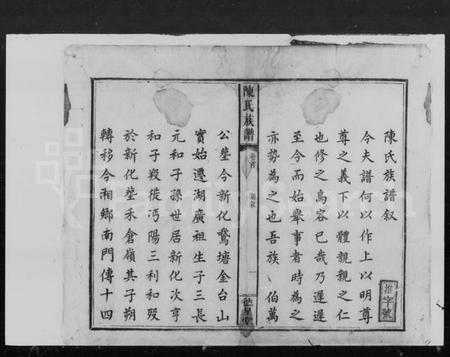 陳氏族譜叙
今夫譜何以作上以明尊
尊之義下以體親親之仁
也修之烏容已哉乃遲遲
至今而始舉事者時為之
亦勢為之也吾族 伯萬
字號
陳氏族譜
卷首
一
公塋今新化鷲塘金台山
實始遷湖廣祖生子三長
元和子孫世居新化次亨
和子歿徙沔陽三利和歿
於新化塋禾倉嶺其子朔
轉移今湘鄉南門傳十四